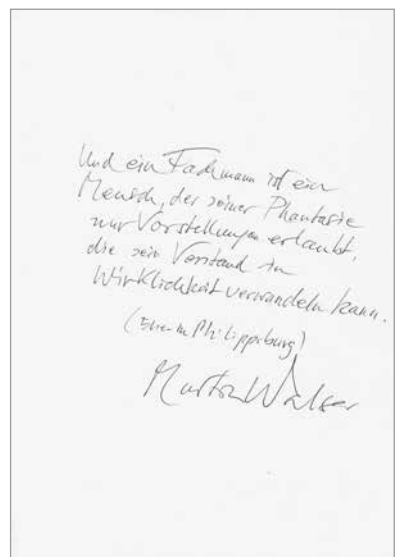 Und ein Fachmann ist ein
Mensch, der seiner Phantasie
nur Vorstellungen erlaubt,
die sein Verstand in
Wirklichkeit verwandeln kann.
(Ehen in Philippsburg)
Martin Walser